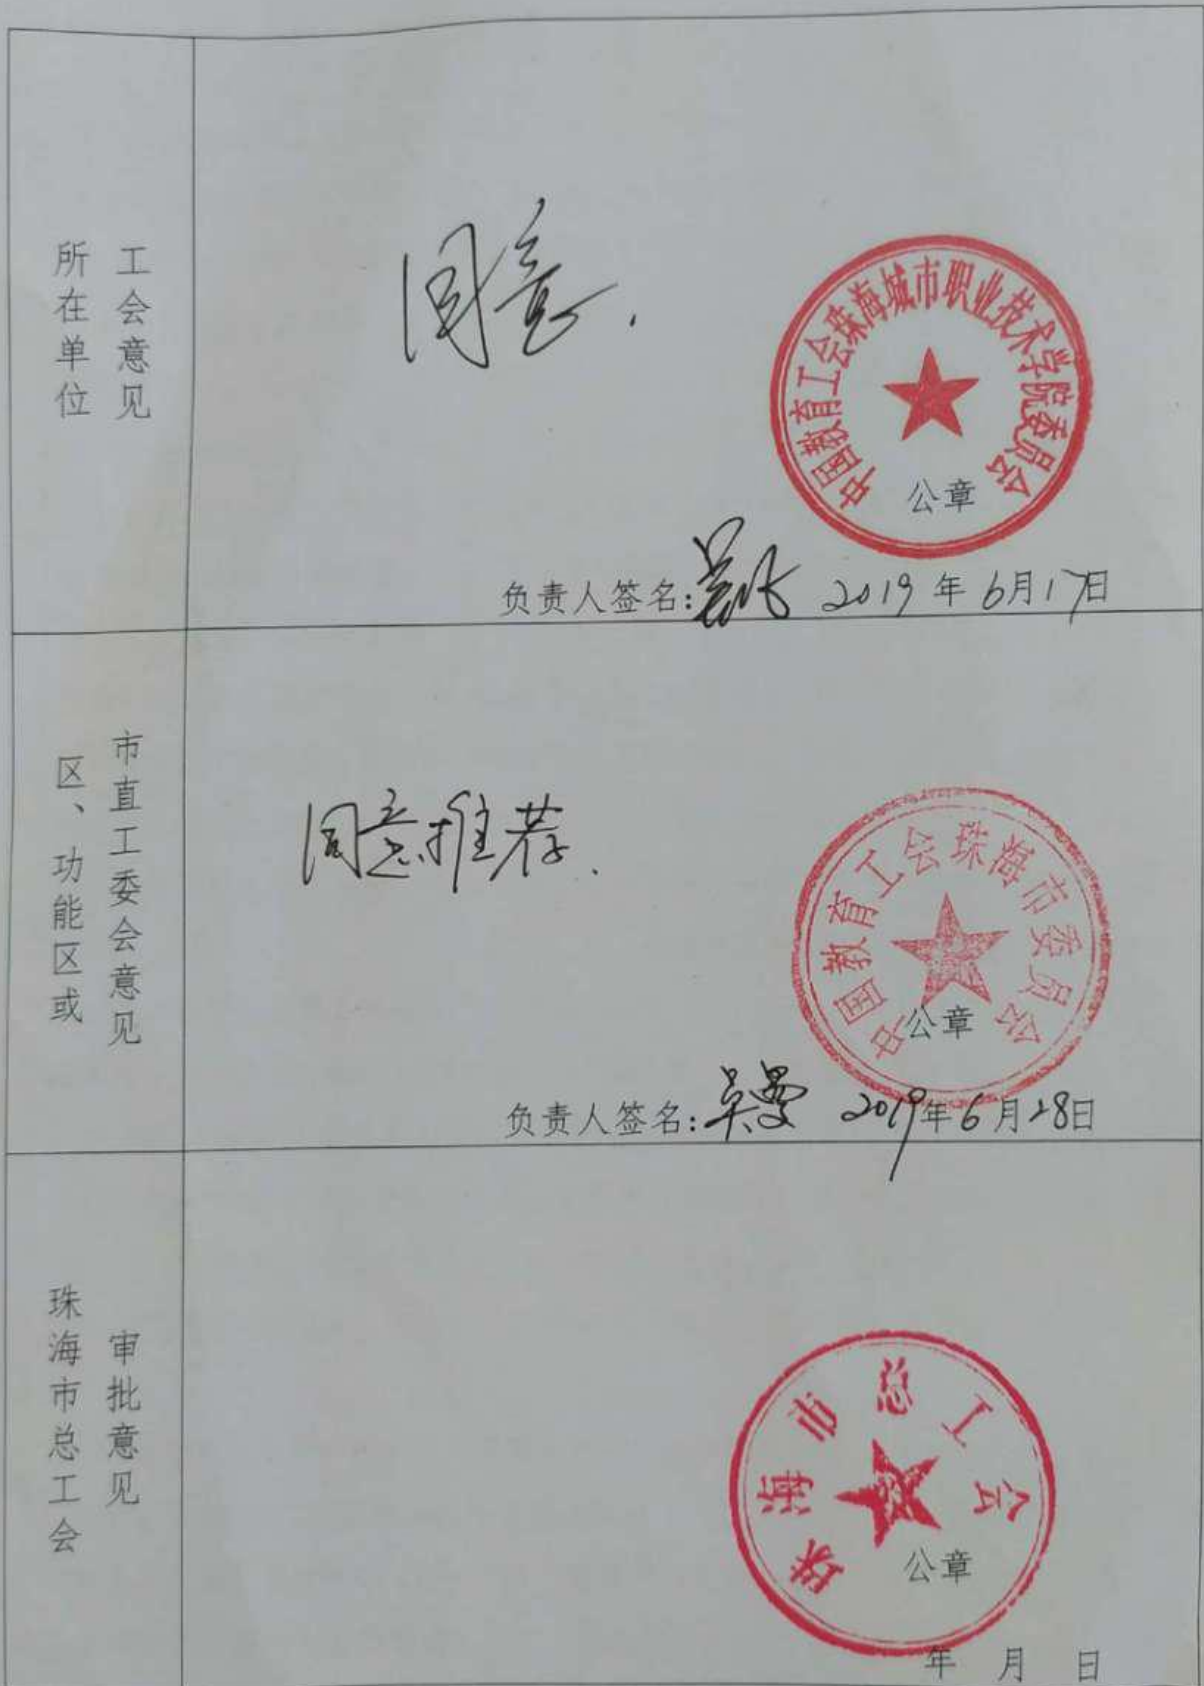 所在单位
工会意见
同意.
中国教育工会珠海城市职业技术学院委员会
公章
负责人签名: 2019年6月17日
区、功能区或
市直工委会意见
同意推荐.
中国教育工会珠海市委员会
公章
负责人签名:吴曼 2019年6月28日
珠海市总工会
审批意见
珠海市总工会
公章
年 月 日